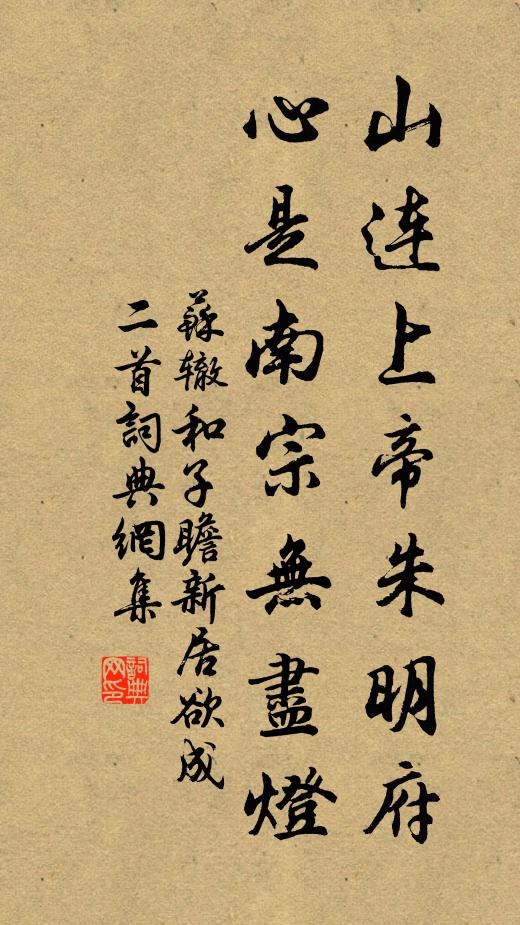 山连上帝朱明府
心是南宗無盡燈
蘇辙和子瞻新居欲成
二首詞典網集
詞典网印